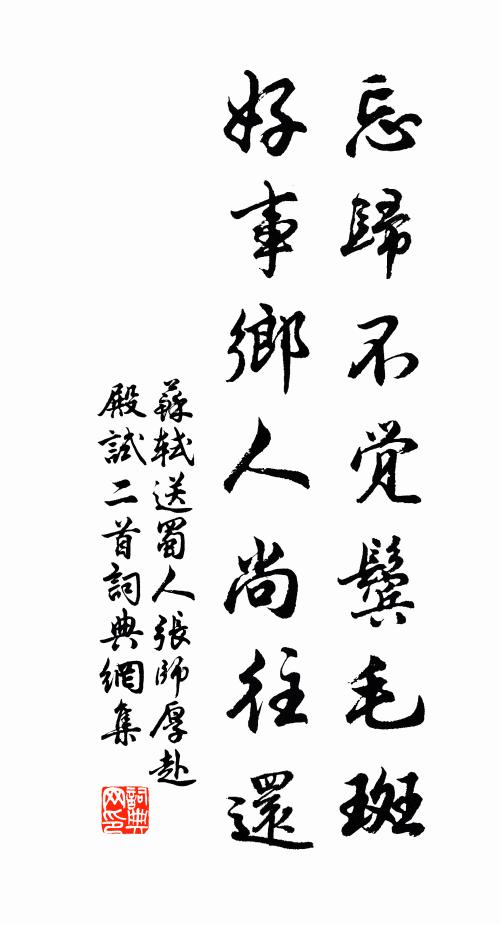 忘歸不觉鬓毛斑
好事鄉人尚往還
蘇軾送蜀人張師厚赴
殿試二首詞典網集
詞典
网印